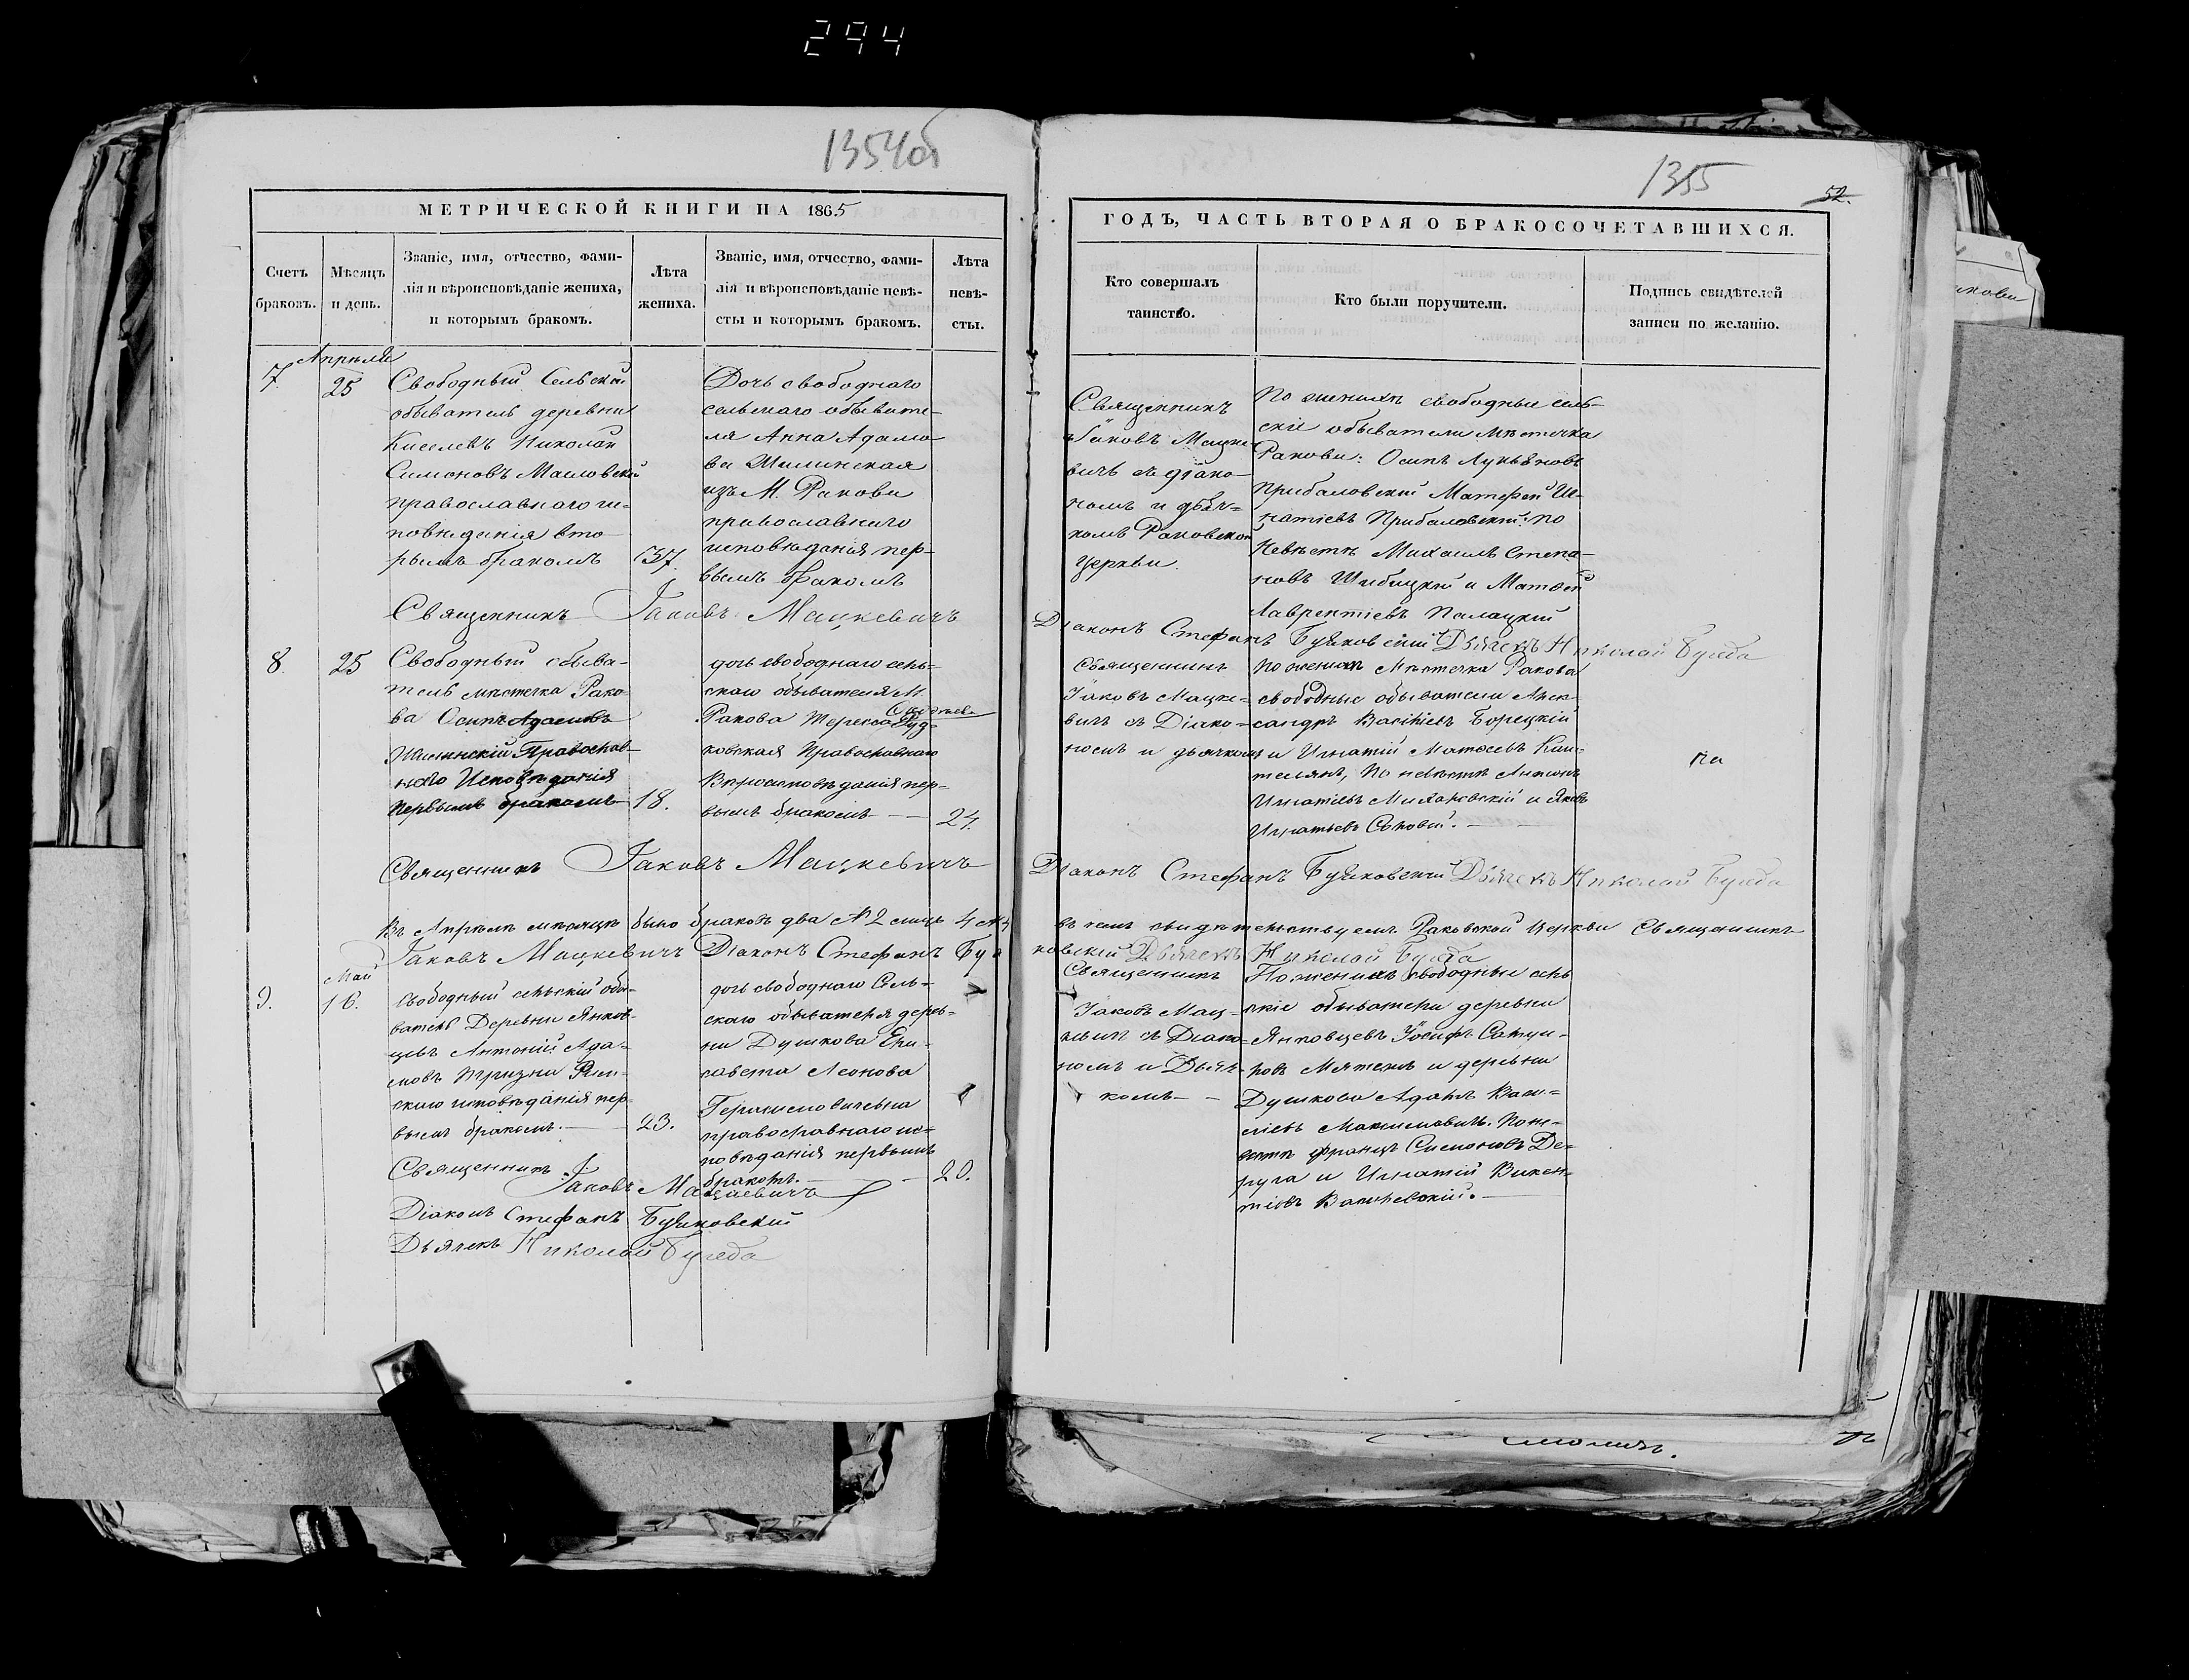 294
1354об
МЕТРИЧЕСКОЙ КНИГИ НА 1865
Счетъ браковъ.
Мѣсяцъ и день.
Званіе, имя, отчество, фами-
лія и вѣроисповѣданіе жениха,
и которымъ бракомъ.
Лѣта
жениха.
Званіе, имя, отчество, фами-
лія и вѣроисповѣданіе невѣ-
сты и которымъ бракомъ.
Лѣта
невѣ-
сты.
Апрѣля
7.
25
Свободный Сельскій
обыватель деревни
Киселевъ Николай
Симоновъ Масловскій
православнаго ис-
повѣданія вто-
рымъ бракомъ
37.
Дочь свободнаго
сельскаго обывате-
ля Анна Адамо-
ва Шиминская
изъ М. Ракова
православнаго
исповѣданія пер-
вымъ бракомъ
Священникъ Іаковъ Мацкевичъ
8.
25
Свободный обыва-
тель мѣстечка Рако-
ва Осипъ Адамовъ
Православ-
наго Исповѣданія
первымъ бракомъ
18.
дочь свободнаго сель-
скаго обывателя М.
Ракова Тереса
ковская Православнаго
Вѣроисповѣданія пер-
вымъ бракомъ
24.
Священникъ Іаковъ Мацкевичъ
Въ Апрѣлѣ мѣсяцѣ было браковъ два № 2 лицъ 4 № 4
Іаковъ Мацкевичъ Діаконъ Стефанъ
Май
9.
16.
Свободный сельскій обы-
ватель Деревни Янков-
цевъ Антоній Ада-
мовъ Тризна Рим-
скаго исповѣданія пер-
вымъ бракомъ.
23.
дочь свободнаго Сель-
скаго обывателя дерев-
ни Душкова Ели-
савета Леонова
Герасимовичевна
православнаго ис-
повѣданія первымъ
бракомъ.
20.
Священникъ Іаковъ Мацкевичъ
Діаконъ Стефанъ
Дьячекъ Николай
1355
52.
ГОДЪ, ЧАСТЬ ВТОРАЯ О БРАКОСОЧЕТАВШИХСЯ.
Кто совершалъ
таинство.
Кто были поручители.
Подпись свидѣтелей
записи по желанію.
Священникъ
Іаковъ Мацке-
вичъ съ діако-
номъ и дьяч-
комъ Раковской
церкви.
По женихѣ свободные сель-
скіе обыватели мѣстечка
Ракова: Осипъ Лукьяновъ
Прибаловскій Матфей Иг-
натіевъ Прибаловскій: по
Невѣстѣ Михаилъ Степа-
новъ Шибицкій и Матфей
Лаврентіевъ Палацкій
Діаконъ Стефанъ Дьячекъ Николай
Священникъ
Іаковъ Мацке-
вичъ съ Діако-
номъ и дьячкомъ
По женихѣ Мѣстечка Ракова
свободные обыватели Алек-
сандръ Васильевъ Борецкій
и Игнатій Матвеевъ
По невѣстѣ Антонъ
Игнатьевъ и Яковъ
Игнатьевъ
Діаконъ Стефанъ Дьячекъ Николай
въ чемъ свидѣтельствуемъ Раковской Церкви Священникъ
ковскій Дьячекъ Николай
Священникъ
Іаковъ Мац-
кевичъ съ Діако-
номъ и Дьяч-
комъ
По женихѣ свободные сель
скіе обыватели деревни
Янковцевъ Іосифъ
и деревни
Душкова Адамъ Васи-
ліевъ Максимовичъ. По не-
вѣстѣ Францъ Симоновъ Де-
руга и Игнатій Викен-
тіевъ